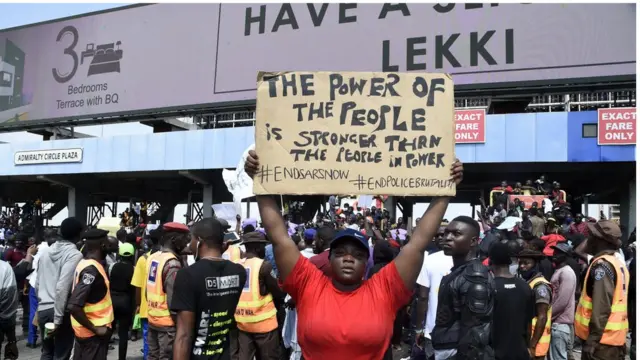 HAVE A
LEKKI
3
Bedrooms
Terrace with BQ
ADMIRALTY CIRCLE PLAZA
EXACT
FARE ONLY
EXACT
FARE
ONLY
THE POWER OF
THE PEOPLE
IS STRONGER THAN
THE PEOPLE IN POWER
#ENDSARSNOW
#ENDPOLICEBRUTALITY
SMART